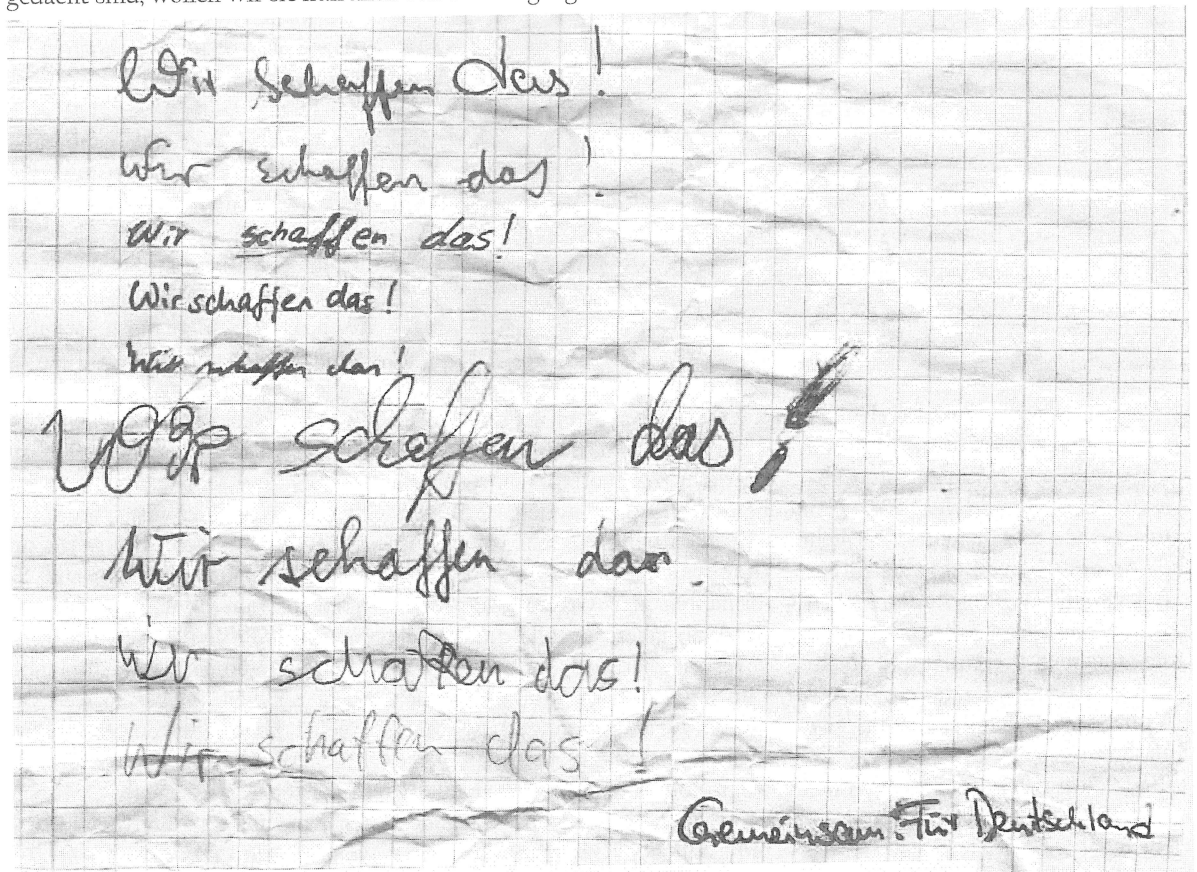 gedacht sind, wollen wir sie
Wir schaffen das!
Wir schaffen das!
Wir schaffen das!
Wir schaffen das!
Wir schaffen das!
schaffen das!
Wir schaffen das.
Wir schaffen das!
Wir schaffen das!
Gemeinsam. Für Deutschland